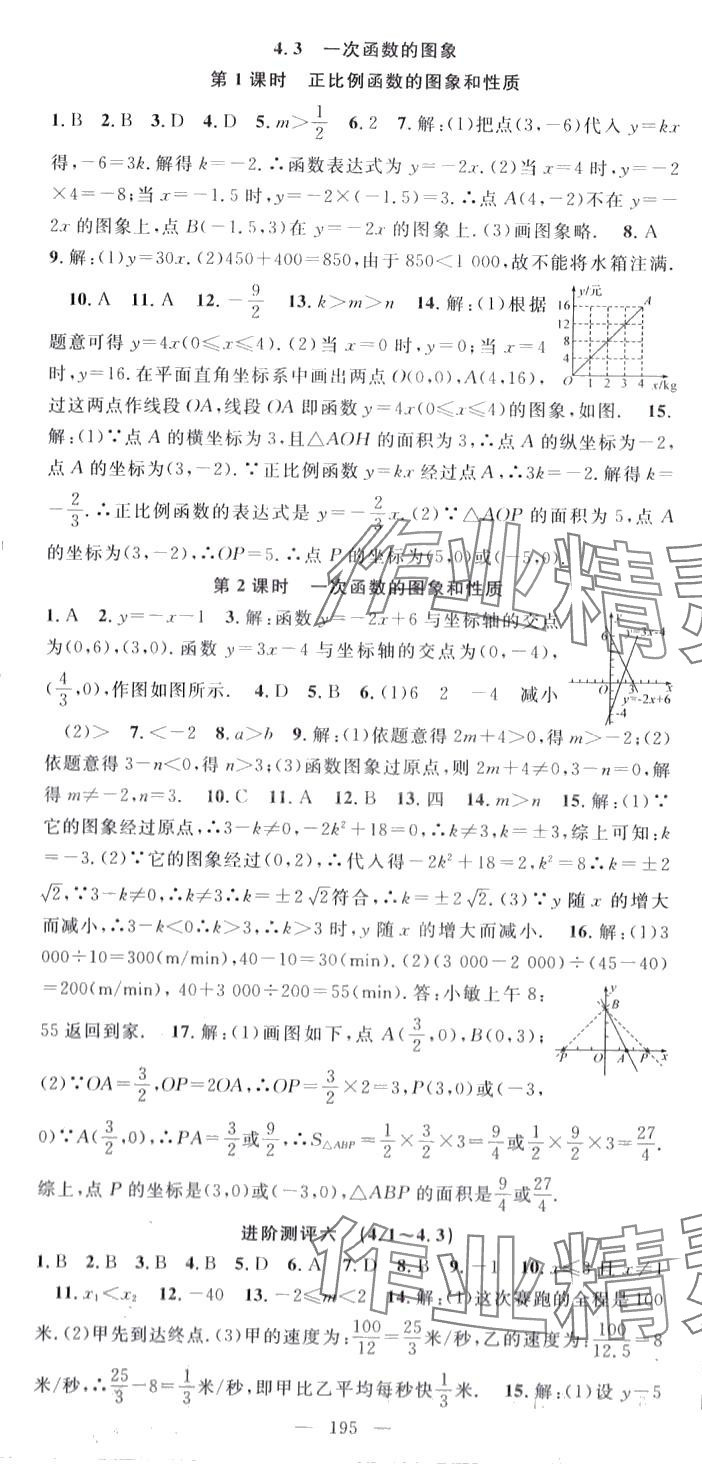 4.3 一次函数的图象
第1课时 正比例函数的图象和性质
1.B 2.B 3.D 4.D 5.m>1/2 6.2 7.解:(1)把点(3,-6)代入 y=kx
得,-6=3k.解得 k=-2.∴函数表达式为 y=-2x.(2)当 x=4 时,y=-2
×4=-8;当 x=-1.5 时,y=-2×(-1.5)=3.∴点 A(4,-2)不在 y=-
2x 的图象上,点 B(-1.5,3)在 y=-2x 的图象上.(3)画图象略. 8.A
9.解:(1)y=30x.(2)450+400=850,由于 850<1 000,故不能将水箱注满.
10.A 11.A 12.-9/2 13.k>m>n 14.解:(1)根据
题意可得 y=4x(0≤x≤4).(2)当 x=0 时,y=0;当 x=4
时,y=16.在平面直角坐标系中画出两点 O(0,0),A(4,16),
y/元
16
12
8
4
O 1 2 3 4 x/kg
A
过这两点作线段 OA,线段 OA 即函数 y=4x(0≤x≤4)的图象,如图. 15.
解:(1)∵点 A 的横坐标为 3,且△AOH 的面积为 3,∴点 A 的纵坐标为-2,
点 A 的坐标为(3,-2).∵正比例函数 y=kx 经过点 A,∴3k=-2.解得 k=
-2/3.∴正比例函数的表达式是 y=-2/3x.(2)∵△AOP 的面积为 5,点 A
的坐标为(3,-2),∴OP=5.∴点 P 的坐标为(5,0)或(-5,0).
第2课时 一次函数的图象和性质
1.A 2.y=-x-1 3.解:函数 y=-2x+6 与坐标轴的交点
为(0,6),(3,0).函数 y=3x-4 与坐标轴的交点为(0,-4),
(4/3,0),作图如图所示. 4.D 5.B 6.(1)6 2 -4 减小
y
6
y=3x-4
O 3 x
y=-2x+6
-4
(2)> 7.<-2 8.a>b 9.解:(1)依题意得 2m+4>0,得 m>-2;(2)
依题意得 3-n<0,得 n>3;(3)函数图象过原点,则 2m+4≠0,3-n=0,解
得 m≠-2,n=3. 10.C 11.A 12.B 13.四 14.m>n 15.解:(1)∵
它的图象经过原点,∴3-k≠0,-2k²+18=0,∴k≠3,k=±3,综上可知:k
=-3.(2)∵它的图象经过(0,2),∴代入得-2k²+18=2,k²=8∴k=±2
√2,∵3-k≠0,∴k≠3∴k=±2√2符合,∴k=±2√2.(3)∵y 随 x 的增大
而减小,∴3-k<0∴k>3,∴k>3 时,y 随 x 的增大而减小. 16.解:(1)3
000÷10=300(m/min),40-10=30(min).(2)(3 000-2 000)÷(45-40)
=200(m/min),40+3 000÷200=55(min).答:小敏上午 8:
55 返回到家. 17.解:(1)画图如下,点 A(3/2,0),B(0,3);
y
B
P O A P x
(2)∵OA=3/2,OP=2OA,∴OP=3/2×2=3,P(3,0)或(-3,
0)∵A(3/2,0),∴PA=3/2或9/2,∴S△ABP=1/2×3/2×3=9/4或1/2×9/2×3=27/4.
综上,点 P 的坐标是(3,0)或(-3,0),△ABP 的面积是9/4或27/4.
进阶测评六 (4.1~4.3)
1.B 2.B 3.B 4.B 5.D 6.A 7.D 8.B 9.-1 10.x≤3且 x≠1
11.x₁<x₂ 12.-40 13.-2≤m<2 14.解:(1)这次赛跑的全程是 100
米.(2)甲先到达终点.(3)甲的速度为:100/12=25/3米/秒,乙的速度为:100/12.5=8
米/秒,∴25/3-8=1/3米/秒,即甲比乙平均每秒快1/3米. 15.解:(1)设 y-5
— 195 —
作业精灵
作业精灵